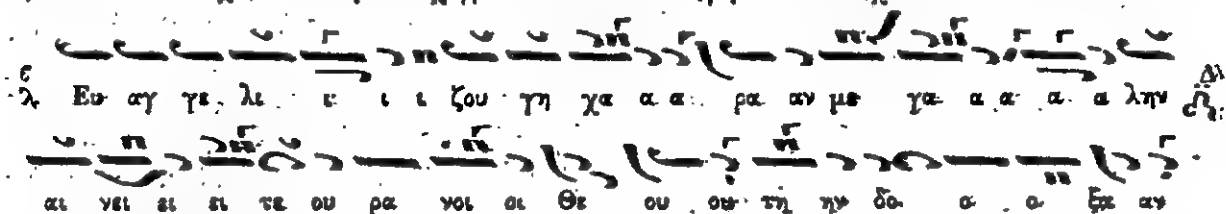 Ευ αγ γε λι ι ι ι ζου γη χα α α ρα αν με γα α α α α λην
αι νει ει ει τε ου ρα νοι οι Θε ου ου τη ην δο ο ο ξα αν